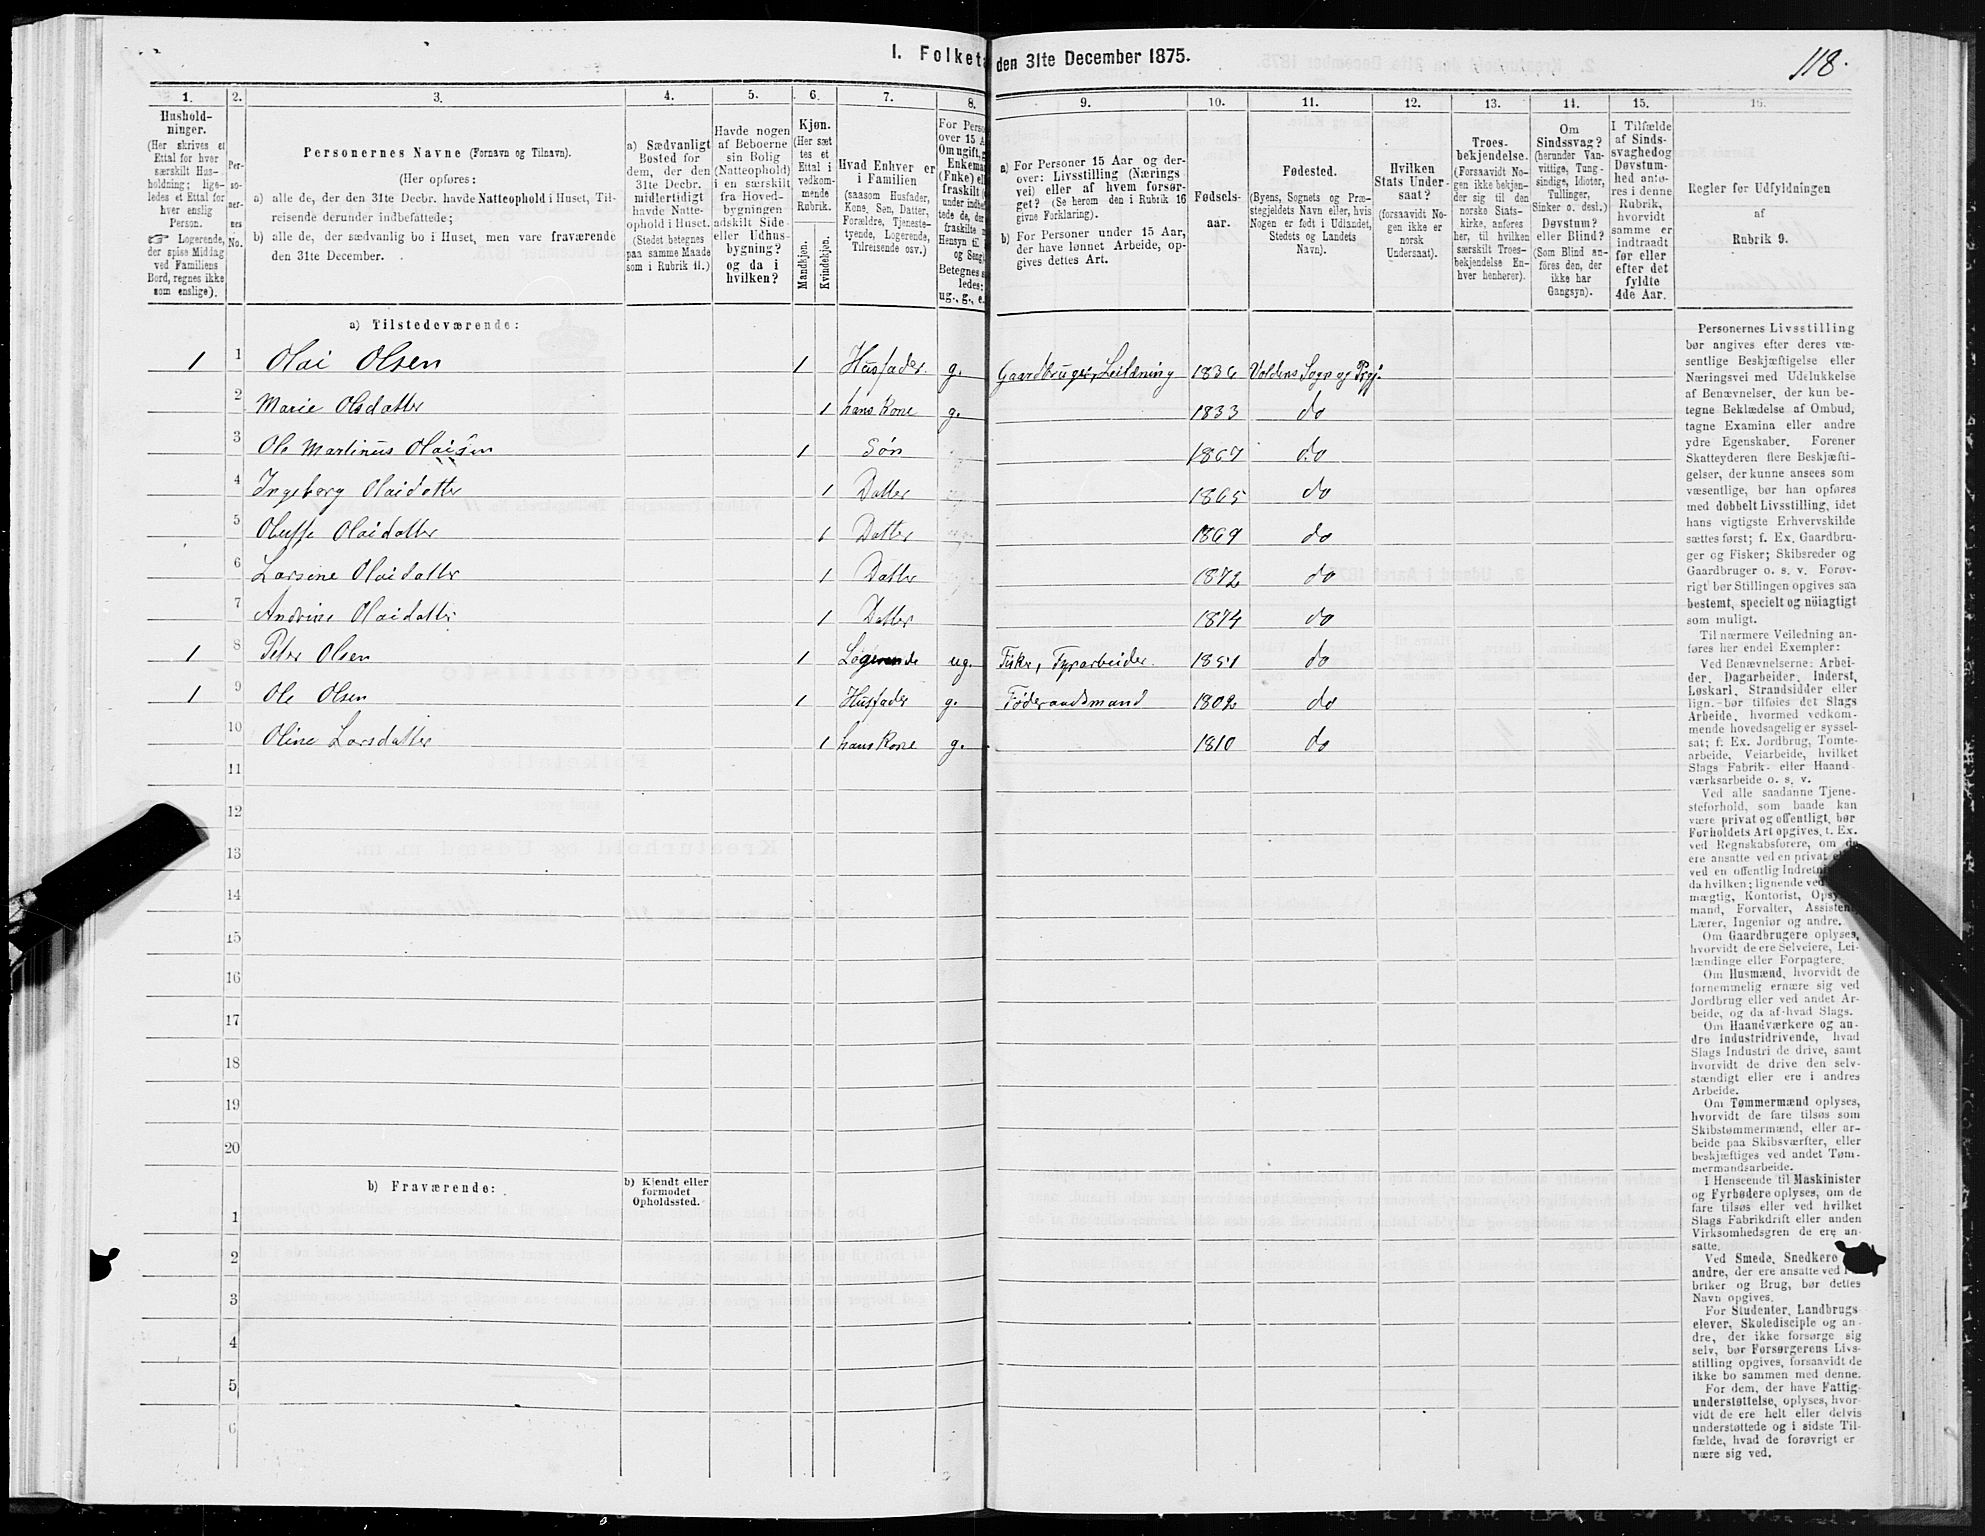 I. Folketæ den 31te December 1875.
118.
1. 2. 3. 4. 5. 6. 7. 8. 9. 10. 11. 12. 13. 14. 15. 16.
Hushold-
ninger.
(Her skrives et
Ettal for hver
særskilt Hus-
holdning; lige-
ledes et Ettal for
hver enslig
Person.
☞ Logerende,
der spise Middag
ved Familiens
Bord, regnes ikke
som enslige).
Per-
so-
ner-
nes
No.
Personernes Navne (Fornavn og Tilnavn).
(Her opføres:
a) alle de, der den 31te Decbr. havde Natteophold i Huset, Til-
reisende derunder indbefattede;
b) alle de, der sædvanlig bo i Huset, men vare fraværende
den 31te December.
a) Sædvanligt
Bosted for
dem, der den
31te Decbr.
midlertidigt
havde Natte-
ophold i Huset.
(Stedet betegnes
paa samme Maade
som i Rubrik 11.)
Havde nogen
af Beboerne
sin Bolig
(Natteophold)
i en særskilt
fra Hoved-
bygningen
adskilt Side-
eller Udhus-
bygning?
og da i
hvilken?
Kjøn.
(Her sæt
tes et
Ettal i
vedkom-
mende
Rubrik.
Mandkjøn.
Kvindekjøn.
Hvad Enhver er
i Familien
(saasom Husfader,
Kone, Søn, Datter,
Forældre, Tjeneste-
tyende, Logerende,
Tilreisende osv.)
For Perso
over 15 A
Om ugift, g
Enkema
(Fnke) el
fraskilt
under indbef
tede de, der
fraskilte
Hensyn til
og Seng
Betegnes s
ledes:
ug., g., e.
a) For Personer 15 Aar og der-
over: Livsstilling (Nærings
vei) eller af hvem forsør-
get? (Se herom den i Rubrik 16
givne Forklaring).
b) For Personer under 15 Aar,
der have lønnet Arbeide, op-
gives dettes Art.
Fødsels-
aar.
Fødested.
(Byens, Sognets og Præ-
stegjeldets Navn eller, hvis
Nogen er født i Udlandet,
Stedets og Landets
Navn).
Hvilken
Stats Under-
saat?
(forsaavidt No-
gen ikke er
norsk
Undersaat).
Troes-
bekjendelse.
(Forsaavidt No
gen ikke bekjen-
der sig til den
norske Stats-
kirke, anføres
her, til hvilken
særskilt Troes-
bekjendelse En-
hver henhører).
Om
Sindssvag?
(herunder Van-
vittige, Tung-
sindige, Idioter,
Tullinger,
Sinker o. desl.)
Døvstum?
eller Blind?
(Som Blind an-
føres den, der
ikke har
Gangsyn).
I Tilfælde
af Sinds-
svaghed og
Døvstum-
hed anfø-
res i denne
Rubrik,
hvorvidt
samme er
indtraadt
før eller
efter det
fyldte
4de Aar.
Regler for Udfyldningen
af
Rubrik 9.
a) Tilstedeværende:
1 1 Olai Olsen 1 Husfader. g. Gaardbruger, Leilæning 1836 Voldens Sogn og Prgj.
2 Marie Olsdatter 1 hans Kone g. 1833 do
3 Ole Martinus Olaisen 1 Søn 1867 do
4 Ingeborg Olaidatter 1 Datter 1865 do
5 Oluffe Olaidatter 1 Datter 1869 do
6 Larsine Olaidatter 1 Datter 1872 do
7 Andrine Olaidatter 1 Datter 1874 do
1 8 Peter Olsen 1 Logerende ug. Fisker, Jordarbeider. 1851 do
1 9 Ole Olsen 1 Husfader g. Føderaadsmand 1802 do
10 Oline Larsdatter 1 hans Kone g. 1810 do
11
12
13
14
15
16
17
18
19
20
b) Fraværende:
b) Kjendt eller
formodet
Opholdssted.
1
2
3
4
5
6
Personernes Livsstilling
bør angives efter deres væ-
sentlige Beskjæftigelse eller
Næringsvei med Udelukkelse
af Benævnelser, der kun be-
tegne Beklædelse af Ombud,
tagne Examina eller andre
ydre Egenskaber. Forener
Skatteyderen flere Beskjæfti-
gelser, der kunne ansees som
væsentlige, bør han opføres
med dobbelt Livsstilling, idet
hans vigtigste Erhvervskilde
sættes først; f. Ex. Gaardbru-
ger og Fisker; Skibsreder og
Gaardbruger o. s. v. Forøv-
rigt bør Stillingen opgives saa
bestemt, specielt og nöiagtigt
som muligt.
Til nærmere Veiledning an-
føres her endel Exempler:
Ved Benævnelserne: Arbei-
der, Dagarbeider, Inderst,
Løskarl, Strandsidder eller
lign. bør tilføies det Slags
Arbeide, hvormed vedkom-
mende hovedsagelig er syssel-
sat; f. Ex. Jordbrug, Tomte-
arbeide, Veiarbeide, hvilket
Slags Fabrik- eller Haand-
værksarbeide o. s. v.
Ved alle saadanne Tjene-
steforhold, som baade kan
være privat og offentligt, bør
Forholdets Art opgives, t. Ex.
ved Regnskabsførere, om de
ere ansatte ved en privat el
ved en offentlig Indretni
da hvilken; lignende ved
mægtig, Kontorist, Opsy
mand, Forvalter, Assisten
Lærer, Ingeniør og andre.
Om Gaardbrugere oplyses,
hvorvidt de ere Selveiere, Lei-
lændinge eller Forpagtere.
Om Husmænd, hvorvidt de
fornemmelig ernære sig ved
Jordbrug eller ved andet Ar-
beide, og da af hvad Slags.
Om Haandværkere og an-
dre industridrivende, hvad
Slags Industri de drive, samt
hvorvidt de drive den selv-
stændigt eller ere i andres
Arbeide.
Om Tømmermænd oplyses,
hvorvidt de fare tilsøs som
Skibstømmermænd, eller ar-
beide paa Skibsværfter, eller
beskjæftiges ved andet Tøm-
mermandsarbeide.
I Henseende til Maskinister
og Fyrbødere oplyses, om de
fare tilsøs eller ved hvilket
Slags Fabrikdrift eller anden
Virksomhedsgren de ere an-
satte.
Ved Smede, Snedkere
andre, der ere ansatte ved
briker og Brug, bør dettes
Navn opgives.
For Studenter, Landbrugs
elever, Skoledisciple og an-
dre, der ikke forsørge sig
selv, bør Forsørgerens Livs-
stilling opgives, forsaavidt de
ikke bo sammen med denne.
For dem, der have Fattig-
understøttelse, oplyses, hvor-
vidt de ere helt eller delvis
understøttede og i sidste Til-
fælde, hvad de forøvrigt er-
nære sig ved.